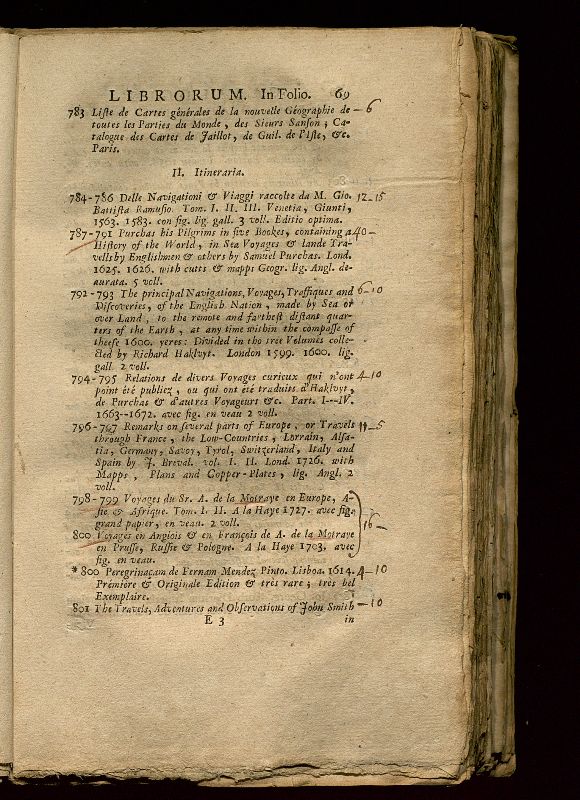 LIBRORUM. In Folio. 69
783 Liste de Cartes générales de la nouvelle Géographie de — 6
toutes les Parties du Monde, des Sieurs Sanson; Ca-
talogue des Cartes de Jaillot, de Guil. de l'Isle, &c.
Paris.
II. Itineraria.
784-786 Delle Navigationi & Viaggi raccolte da M. Gio. 12-15
Battista Ramusio. Tom. I. II. III. Venetia, Giunti,
1563. 1583. con fig. lig. gall. 3 voll. Editio optima.
787-791 Purchas his Pilgrims in five Bookes, containing a 40-
History of the World, in Sea Voyages & lande Tra-
vells by Englishmen & others by Samuel Purchas. Lond.
1625. 1626. with cutts & mapps Geogr. lig. Angl. de-
aurata. 5 voll.
792-793 The principal Navigations, Voyages, Traffiques and 6-10
Discoveries, of the English Nation, made by Sea or
over Land, to the remote and farthest distant quar-
ters of the Earth, at any time within the compasse of
theese 1600. yeres: Divided in tho tree Volumes colle-
cted by Richard Hakluyt. London 1599. 1600. lig.
gall. 2 voll.
794-795 Relations de divers Voyages curieux qui n'ont 4-10
point été publiez, ou qui ont été traduits d'Hakluyt,
de Purchas & d'autres Voyageurs &c. Part. I---IV.
1663--1672. avec fig. en veau 2 voll.
796-797 Remarks on several parts of Europe, or Travels -5
through France, the Low-Countries, Lorrain, Alsa-
tia, Germany, Savoy, Tyrol, Switzerland, Italy and
Spain by J. Breval. vol. I. II. Lond. 1726. with
Mapps, Plans and Copper-Plates, lig. Angl. 2
voll.
798-799 Voyages du Sr. A. de la Motraye en Europe, A-
sie & Afrique. Tom. I. II. A la Haye 1727. avec fig.
grand papier, en veau. 2 voll.
16-
800 Voyages en Anglois & en François de A. de la Motraye
en Prusse, Russie & Pologne. A la Haye 1703. avec
fig. en veau.
* 800 Peregrinaçam de Fernam Mendez Pinto. Lisboa. 1614. 4-10
Prémiére & Originale Edition & très rare; très bel
Exemplaire.
801 The Travels, Adventures and Observations of John Smith -10
E 3 in